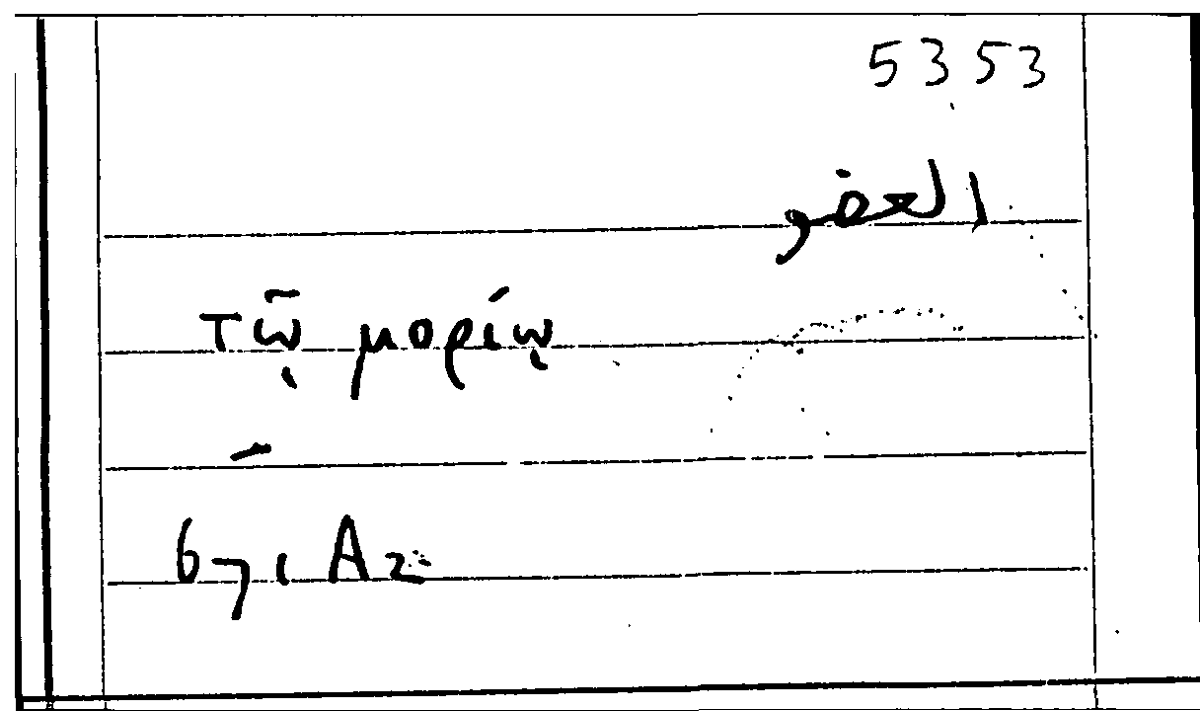 5353
العضو
τῷ μορίῳ
–
671 A2